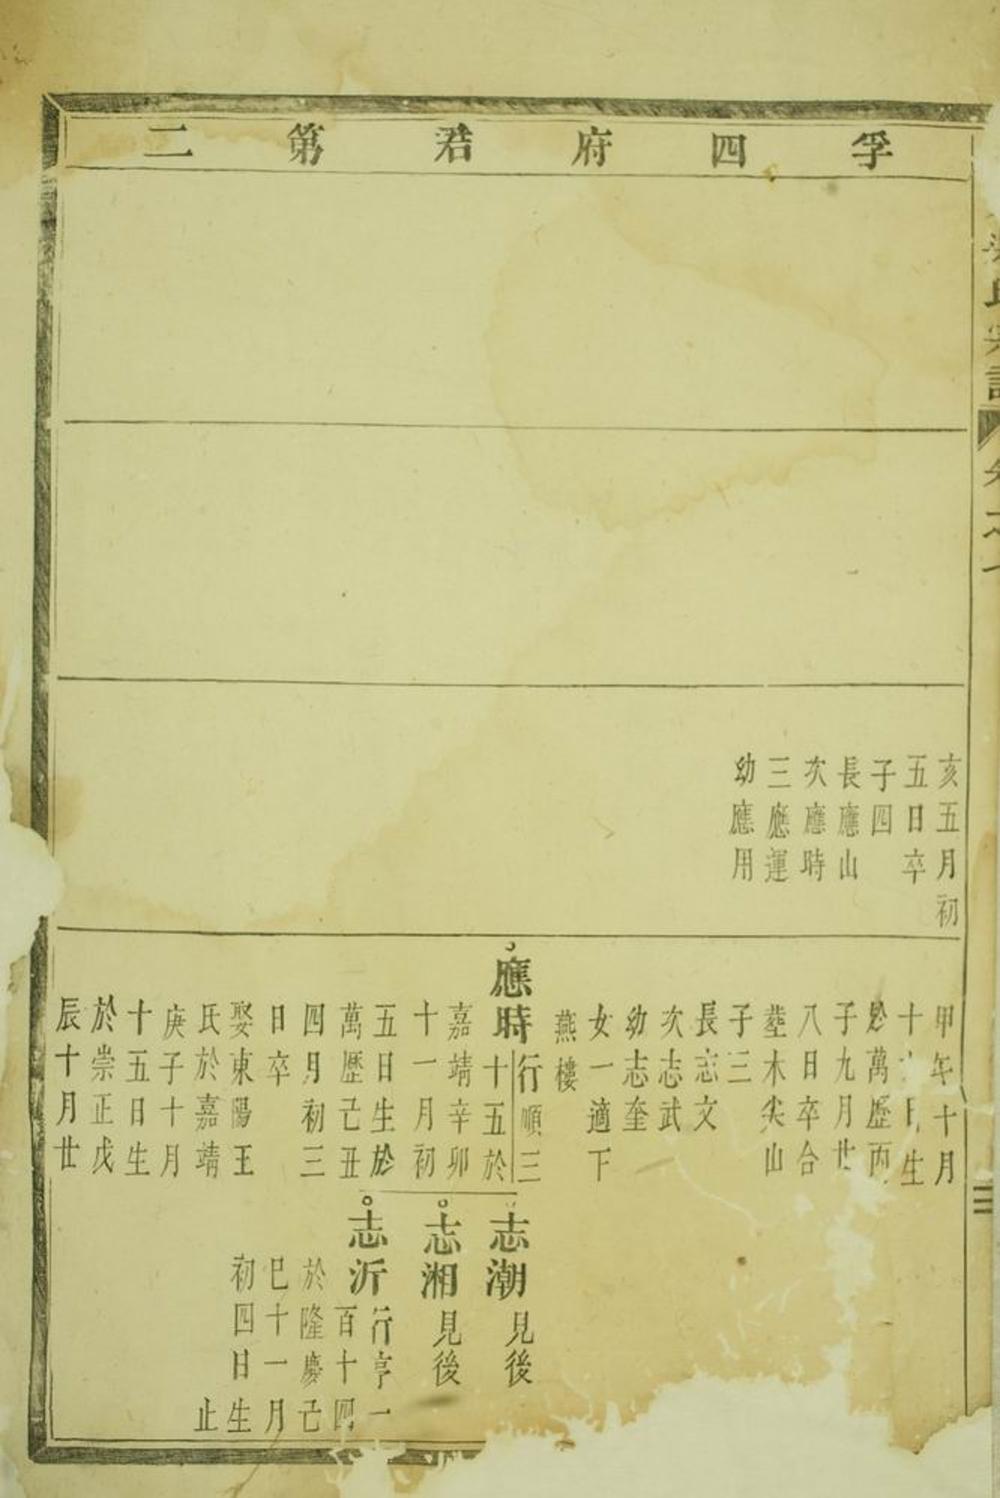 孚四府君第二
亥五月初
五日卒
子四
長應山
次應時
三應運
幼應用
甲午十月
十日生
萬歷丙
子九月廿
八日卒合
塟木尖山
子三
長志文
次志武
幼志奎
女一適下
燕樓
應時行順三
十五於
嘉靖辛卯
十一月初
五日生於
萬歷己丑
四月初三
日卒
娶東陽王
氏於嘉靖
庚子十月
十五日生
於崇正戊
辰十月廿
志潮見後
志湘見後
志沂行亨一
百十四
於隆慶己
巳十一月
初四日生
止